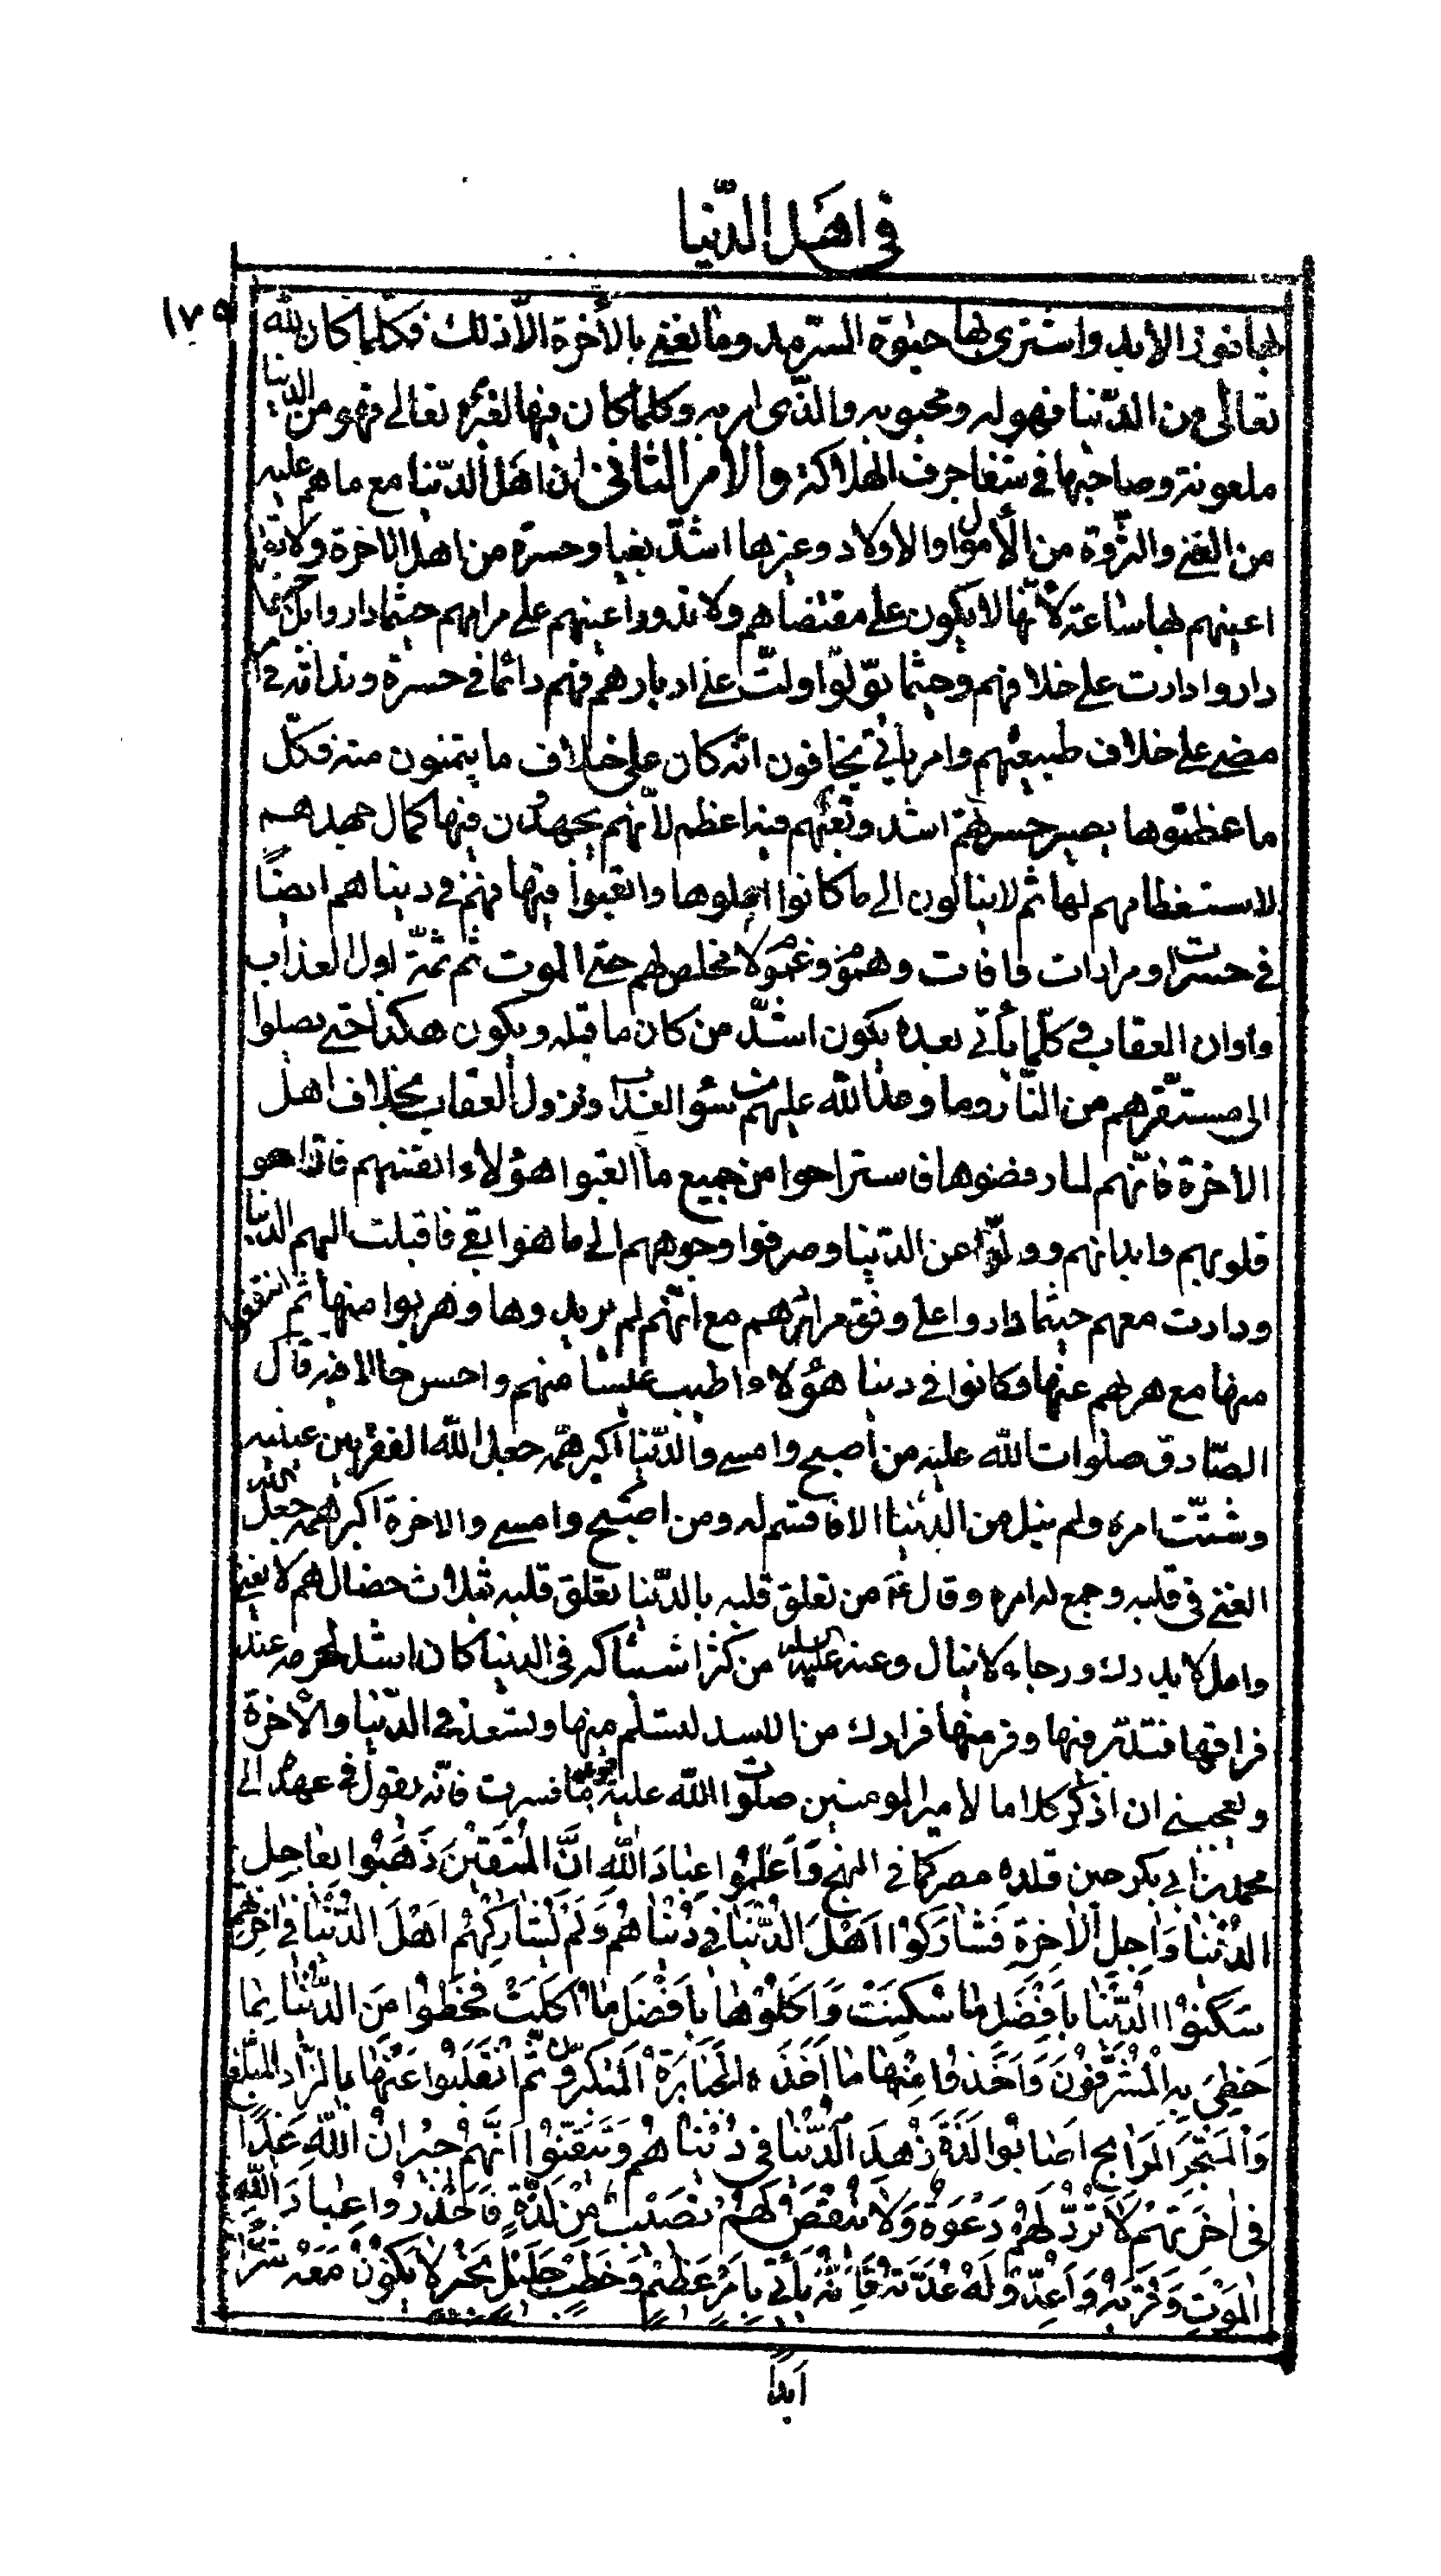 في اهل الدّنيا
١٧٥
لها نفوز الأبد واشترى بها حيٰوة السّرمد وما نعني بالأخرة الّا ذلك فكلّما كان للّه
تعالى من الدّنيا فهو له ومحبوبه والذّى امر به وكلّما كان فيها لغيره تعالى فهو من الدّنيا
ملعونة وصاحبها في شفا جرف الهلاكة والأمر الثاني انّ اهل الدّنيا مع ما هم عليه
من الغنى والثّروة من الأموال والاولاد وغيرها اشدّ تعبا وحسرة من اهل الاخرة ولا تقرّ
اعينهم لها ساعة لأنّها لا يكون على مقتضاهم ولا تدور اعينهم على مرامهم حيثما داروا بل
داروا دارت على خلافهم وحيثما تولّوا ولّت على ادبارهم فهم دائما في حسرة وندامة
مضى على خلاف طبيعتهم وامر يأتي يخافون انّه كان على خلاف ما يتمنون منه فكلّ
ما عظّموها يصير حسرتهم اشد وتعبهم فيه اعظم لأنّهم يجهدون فيها كمال جهدهم
لاستعظامهم لها ثم لا ينالون الى ما كانوا املوها واتعبوا فيها فهم في دنياهم ايضًا
في حسرات ومرادات فافات وهموم وغموم لا مخلص لهم حتى الموت ثم ثمّة اول العذاب
واوان العقاب في كلّما يأتي بعده يكون اشدّ من كان ما قبله ويكون هكذا حتى يصلوا
الى مستقرّهم من النّار وما وعد اللّه عليهم من سوء العذاب ونزول العقاب بخلاف اهل
الأخرة فانّهم لما رفضوها فاستراحوا من جميع ما اتعبوا هؤلاء انفسهم فاراحوا
قلوبهم وابدانهم وولّوا عن الدّنيا وصرفوا وجوههم الى ما هو ابقى فاقبلت اليهم الدّنيا
ودارت معهم حيثما داروا على وفق مرامهم مع انّهم لم يريدوها وهربوا منها ثم انتفعوا
منها مع هربهم عنها فكانوا في دنيا هؤلاء اطيب عيشا منهم واحسن حالا فيه قال
الصّادق صلوات اللّه عليه من اصبح وامسى والدّنيا اكبر همّه جعل اللّه الفقر بين عينيه
وشتّت امره ولم ينل من الدّنيا الا ما قسم له ومن اصبح وامسى والاخرة اكبر همّه جعل اللّه
الغنى في قلبه وجمع له امره وقال ع من تعلق قلبه بالدّنيا تعلق قلبه بثلاث خصال هم لا يفنى
وامل لا يدرك ورجاء لا ينال وعنه عليه السلام من كثر اشتباكه في الدنيا كان اشد لحسرته عند
فراقها فتدبّر فيها وفر منها فرارك من الاسد لتسلم منها وتسعد في الدّنيا والأخرة
ويعجبني ان اذكر كلاما لأمير المومنين صلوات اللّه عليه فوق ما فسرت فانّه يقول في عهده الى
محمد بن ابي بكر حين قلده مصر كما في النهج وَاَعْلَمُوا عِبادَ اللّٰهِ انَّ المُتَقّينَ ذَهَبُوا بعاجِلِ
الدُّنْيا وَاجِلِ الأخِرَةِ فَشٰارَكُوا اَهْلَ الدُّنْيا في دُنْياهُمْ وَلَمْ يُشارِكْهُم اَهْلَ الدُّنْيا في اخِرَتِهم
سَكَنوُا الدُّنْيا بِاَفْضَلِ ما سُكِنَتْ وَاَكَلُوْها بِاَفْضَلِ ما اُكِلَتْ فَحَظُوا مِنَ الدُّنْيا بِما
حَظِيَ بِهِ المُتْرَفُونَ وَاَخَذوُا مِنْها ما اَخَذَهُ الجَبابِرَةُ المُتَكَبِّرُونَ ثُمَّ انْقَلَبوُا عَنْها بِالزّادِ المُبَلِّغِ
وَالمَتْجَرِ المَرابِحِ اصابوا لَذَّةَ زُهْدِ الدُّنْيا فى دُنْياهُمْ وَتَيَقَّنوُا اَنَّهُمْ جيرانُ اللّٰهِ غَدًا
فى اخِرَتِهِمْ لا تُرَدُّ لَهُمْ دَعْوَةٌ وَلا يَنْقُصُ لَهُمْ نَصيْبٌ مِنْ لَذَّةٍ فَاحْذَروُا عِبادَ اللّٰهِ
المَوْتَ وَقُرْبَهُ وَاَعِدّوُا لَهُ عُدَّتَهُ فَاِنَّهُ يَأْتى بِاَمْرٍ عَظيْمٍ وَخَطْبٍ جَليْلٍ بِخَيْرٍ لا يَكُونُ مَعَهُ شَرٌّ
اَبَدًا